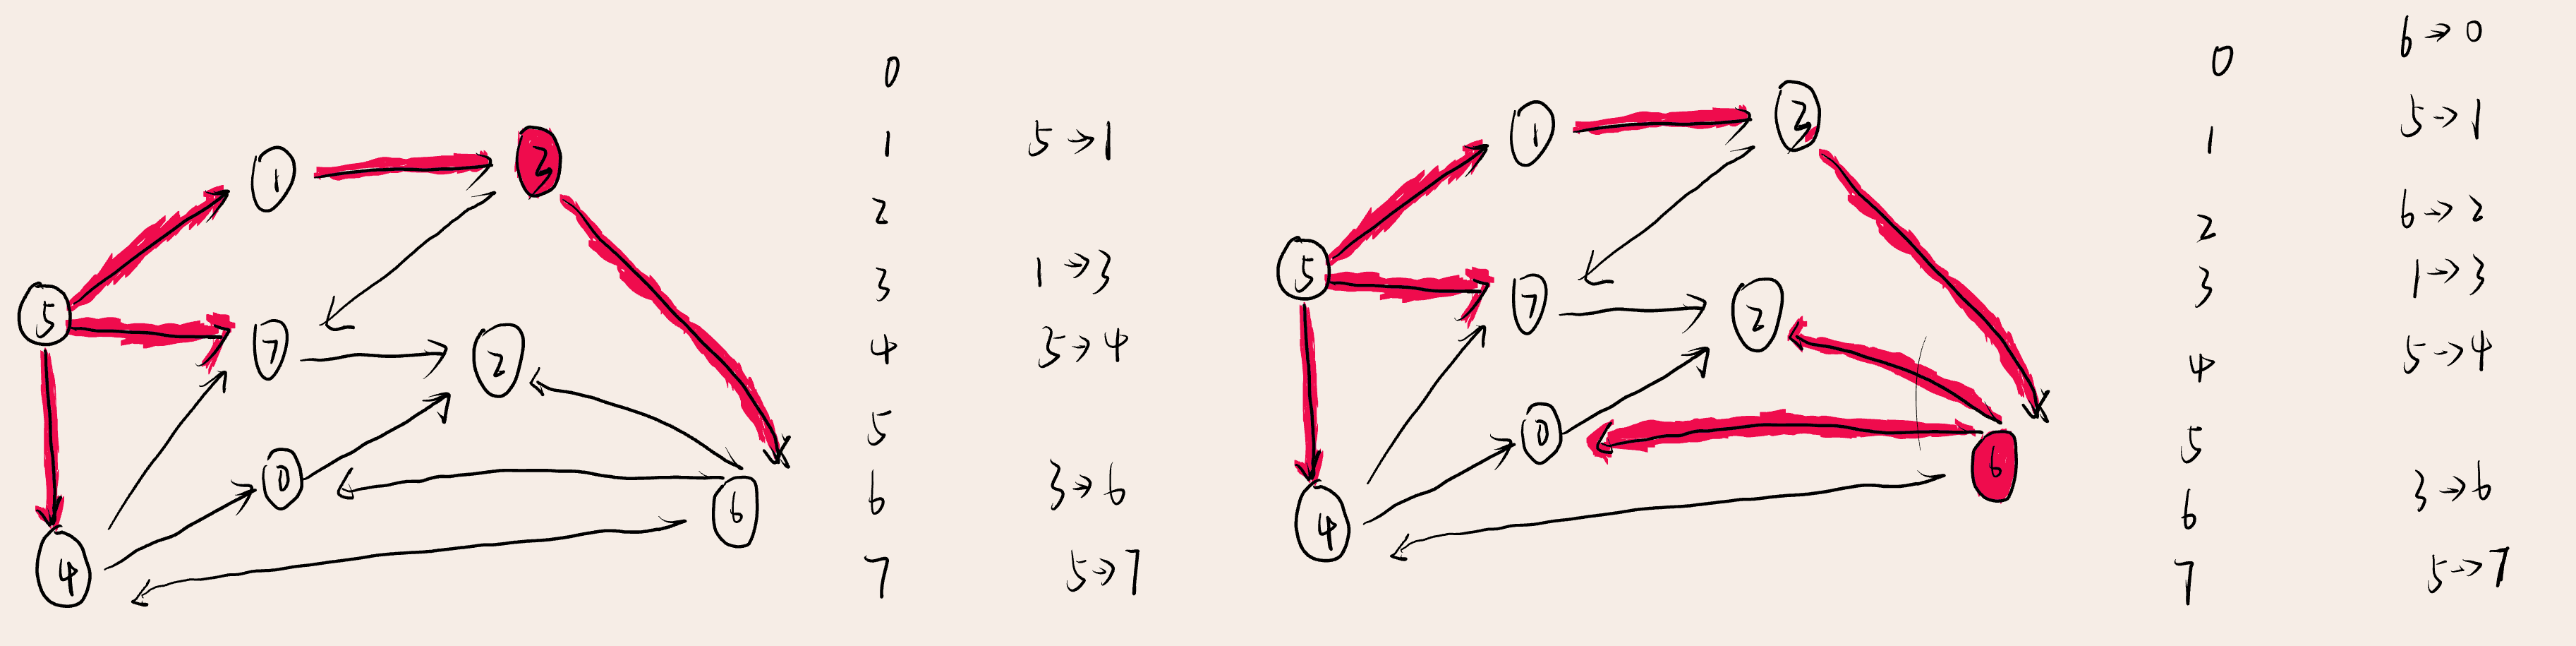 1
3
5
7
2
0
6
4
0
1 5→1
2
3 1→3
4 5→4
5
6 3→6
7 5→7
1
3
5
7
2
0
6
4
0 6→0
1 5→1
2 6→2
3 1→3
4 5→4
5
6 3→6
7 5→7